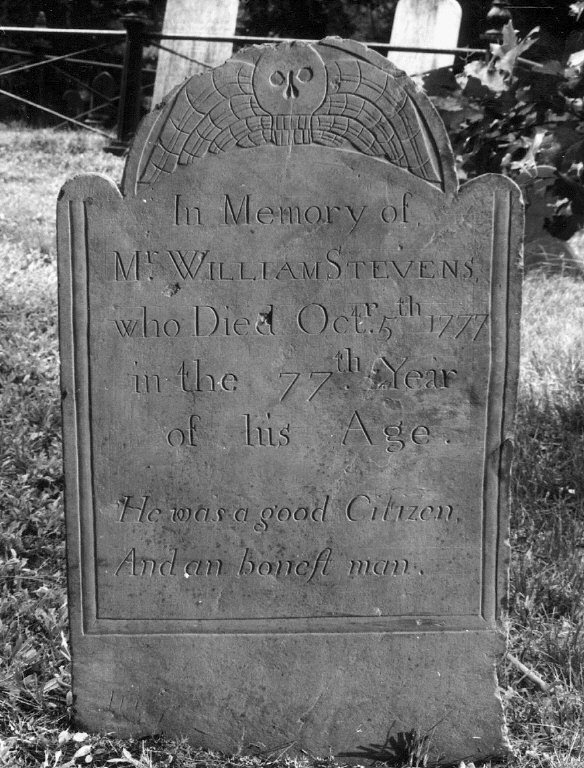 In Memory of
Mr. WILLIAM STEVENS,
who Died Octr. 5th 1777
in the 77th. Year
of his Age.
He was a good Citizen,
And an honeſt man.